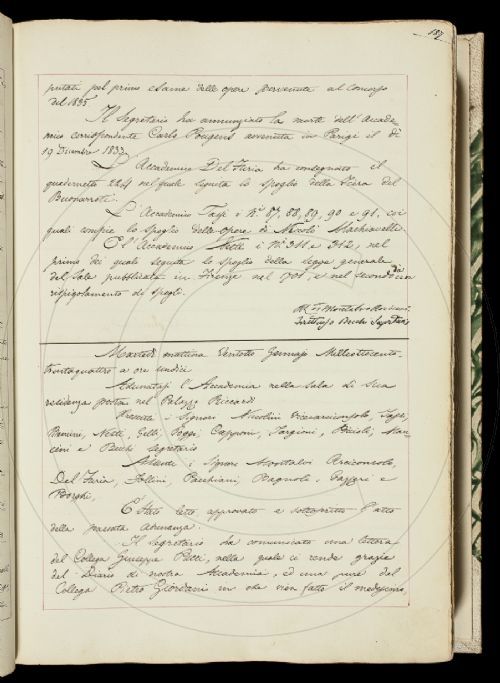 187
putati pel primo esame delle opere pervenute al Concorso
del 1835
Il Segretario ha annunziato la morte dell'Accade-
mico corrispondente Carlo Pougens avvenuta in Parigi il dì
19 Dicembre 1833.
L'Accademico Del Furia ha consegnato il
quadernetto 224 nel quale seguita lo spoglio della Fiera del
Buonarroti.
L'Accademico Tassi i Ni. 87, 88, 89, 90 e 91, coi
quali compie lo spoglio delle opere di Nicolò Machiavelli.
E l'Accademico Nesti i Ni 311 e 312, nel
primo dei quali seguita lo spoglio della legge generale
del Sale pubblicata in Firenze nel 1701, e nel secondo dà un
rispigolamento di spogli.
Montalvo
Fruttuoso Becchi Segretario
Martedì mattina Ventotto Gennajo Milleottocento-
trentaquattro a ore undici
Adunatasi l'Accademia nella Sala di sua
residenza posta nel Palazzo Riccardi
Presenti i Signori Niccolini Vicearciconsolo, Tassi,
Nesti, Gelli, Poggi, Capponi, Targioni, Man-
cini e Becchi Segretario
Assenti i Signori Montalvi Arciconsolo,
Del Furia, Follini, Pacchiani Bagnoli, Gazzeri e
Borghi,
È stato letto approvato e sottoscritto l'atto
della passata adunanza.
Il Segretario ha comunicato una lettera
del Collega Giuseppe Pucci, nella quale ci rende grazie
del Diario di nostra Accademia, ed una pure del
Collega Pietro Giordani in che vien fatto il medesimo